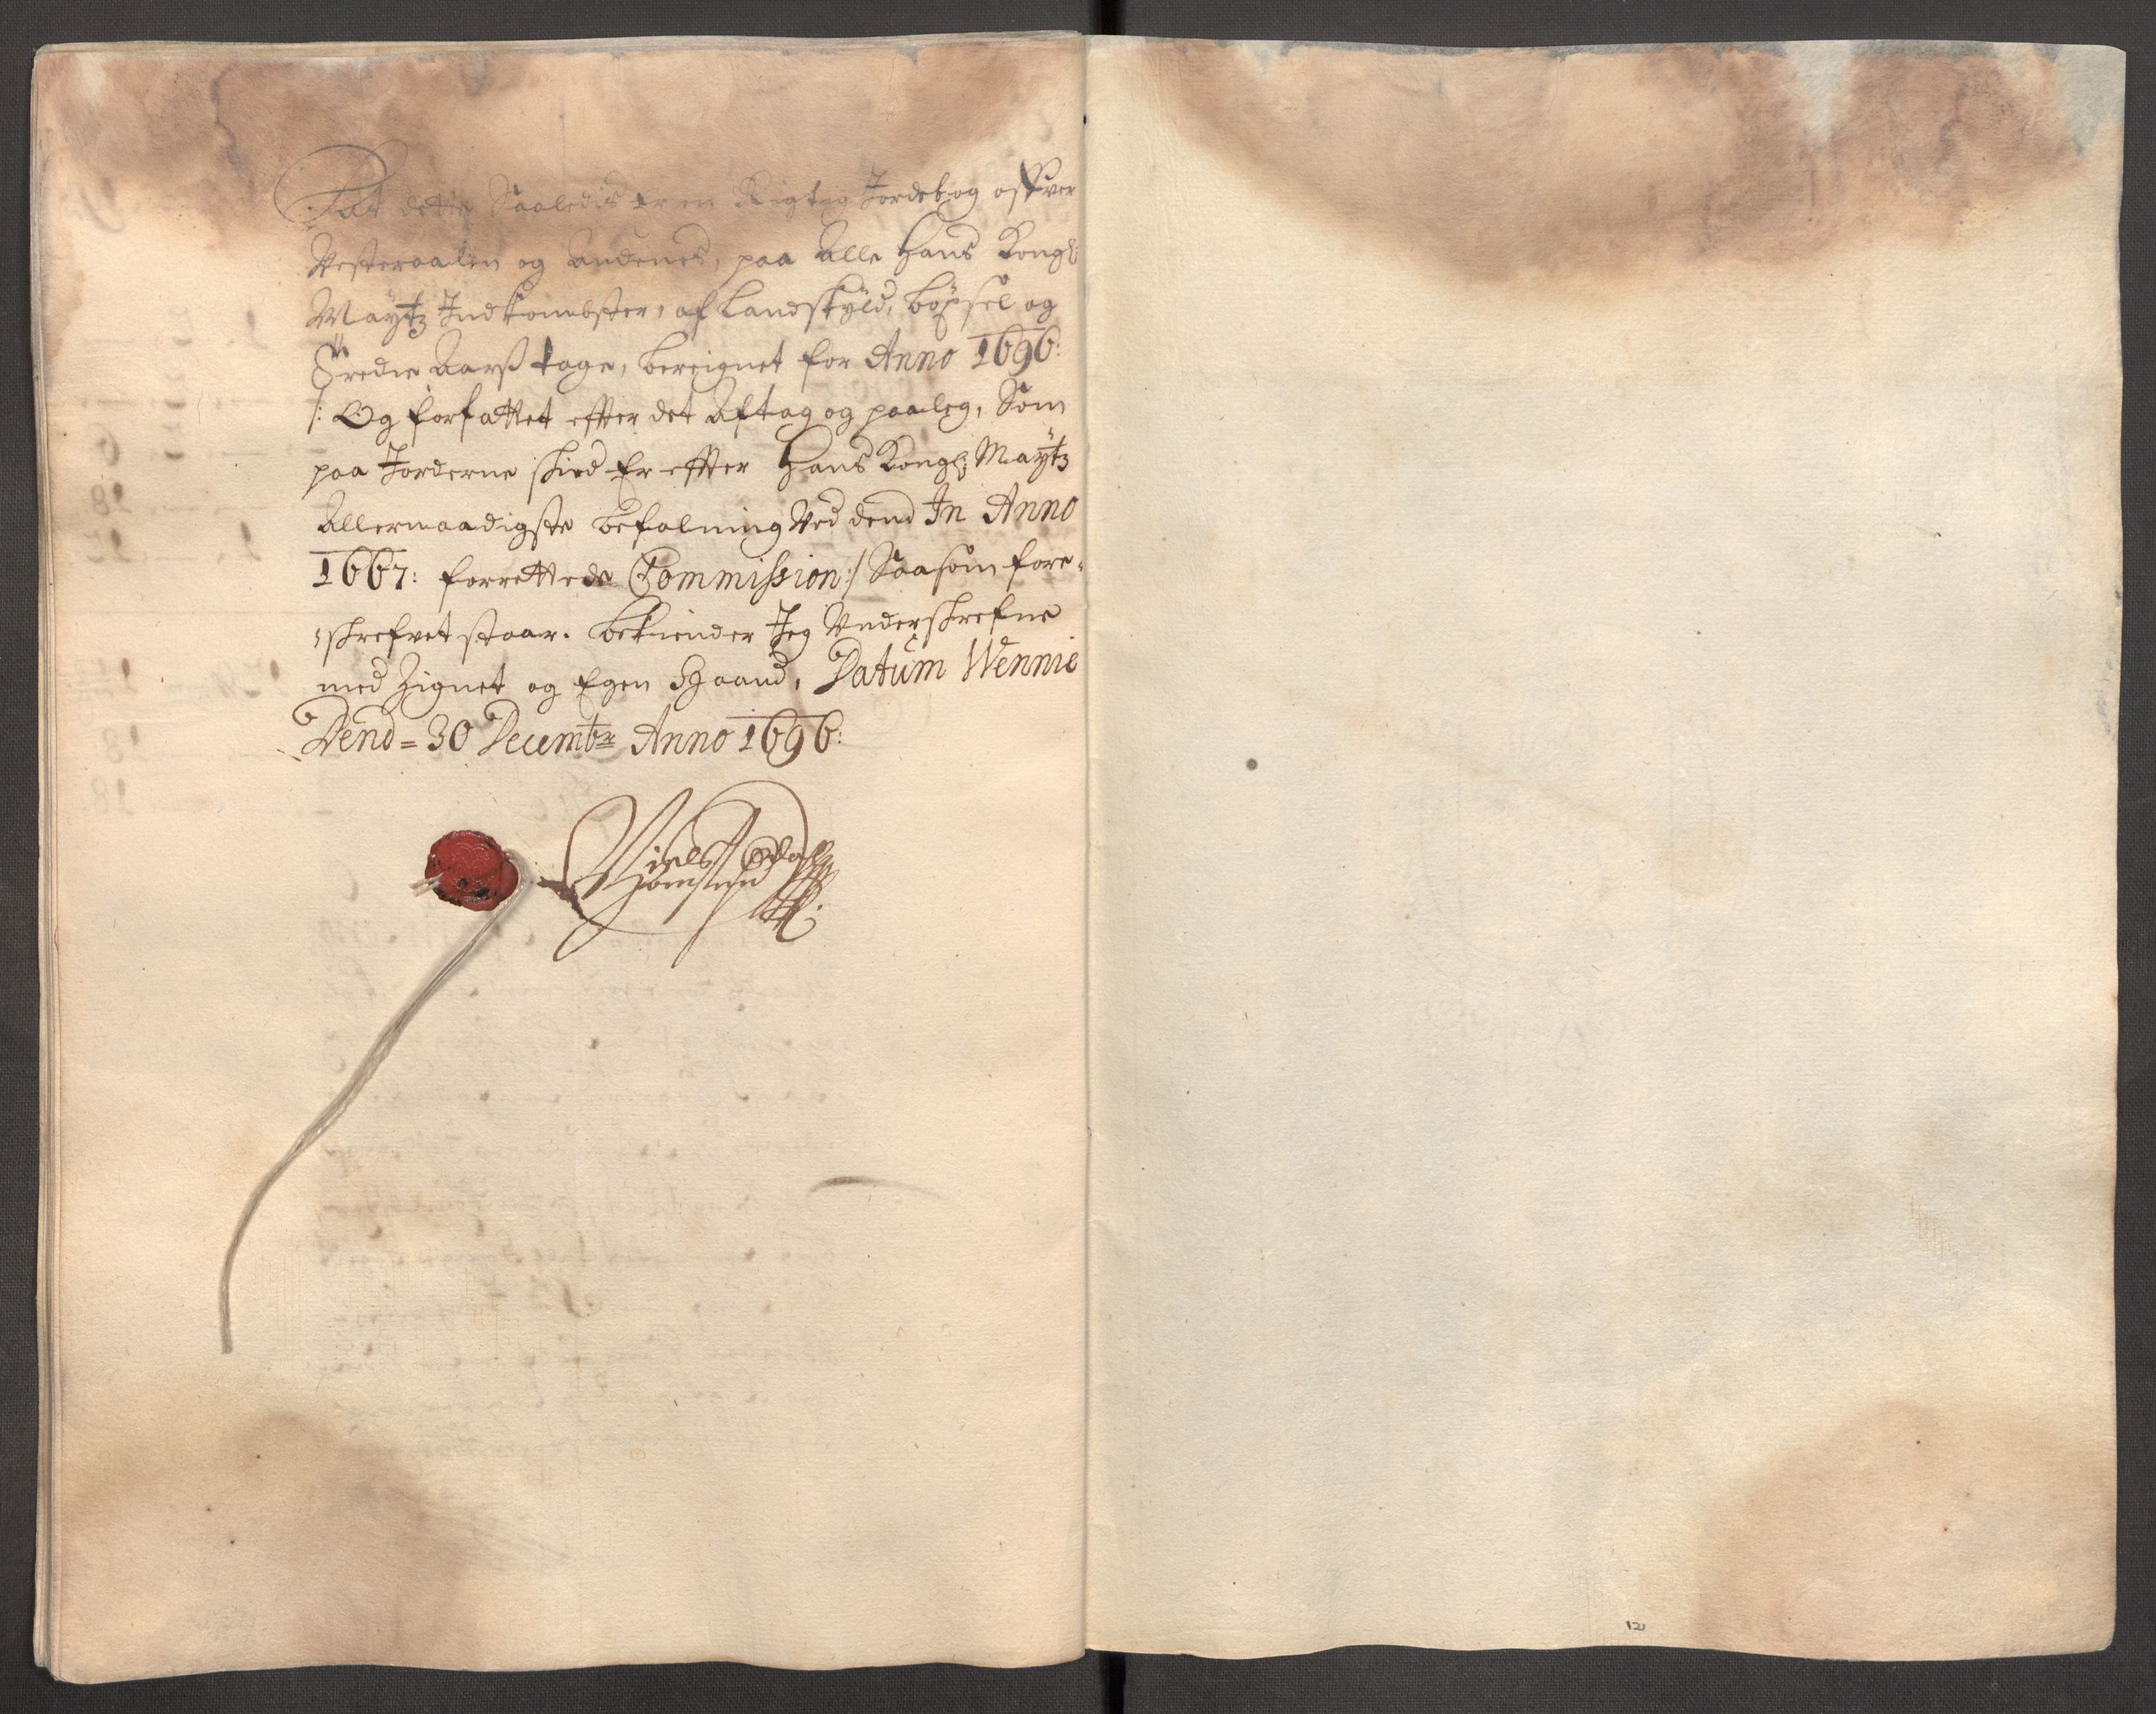 At dette Saaledis Er en Rigtig Jordebog offver
Vesteraalen og Andenes, paa Alle Hans Kongl:
Maÿtz Indkombster, af Landskyld, böxsel og
Tredie Aarß tage, beregnet for Anno 1696:
/: Og forfattet effter det Aftag og paaleg, Som
paa Jorderne skied Er effter Hans Kongl: Maÿtz
Allernaadigste befalning Ved dend In Anno
1667: forrettede Commission :/ Saasom fore-
skrefvet staar. bekiender Jeg Underskrefne
med Zignet og Egen Haand, Datum Wennie
Dend = 30 Decembr Anno 1696:
Niels
12